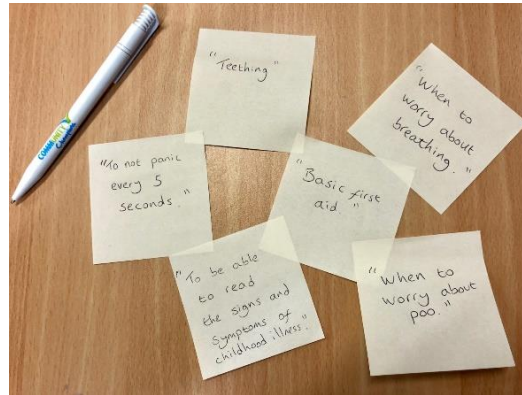 "Teething"
"When to
worry about
breathing."
"To not panic
every 5
seconds."
"Basic first
aid"
"To be able
to read
the signs and
symptoms of
childhood illness."
"When to
worry about
poo."
COMMUNITY